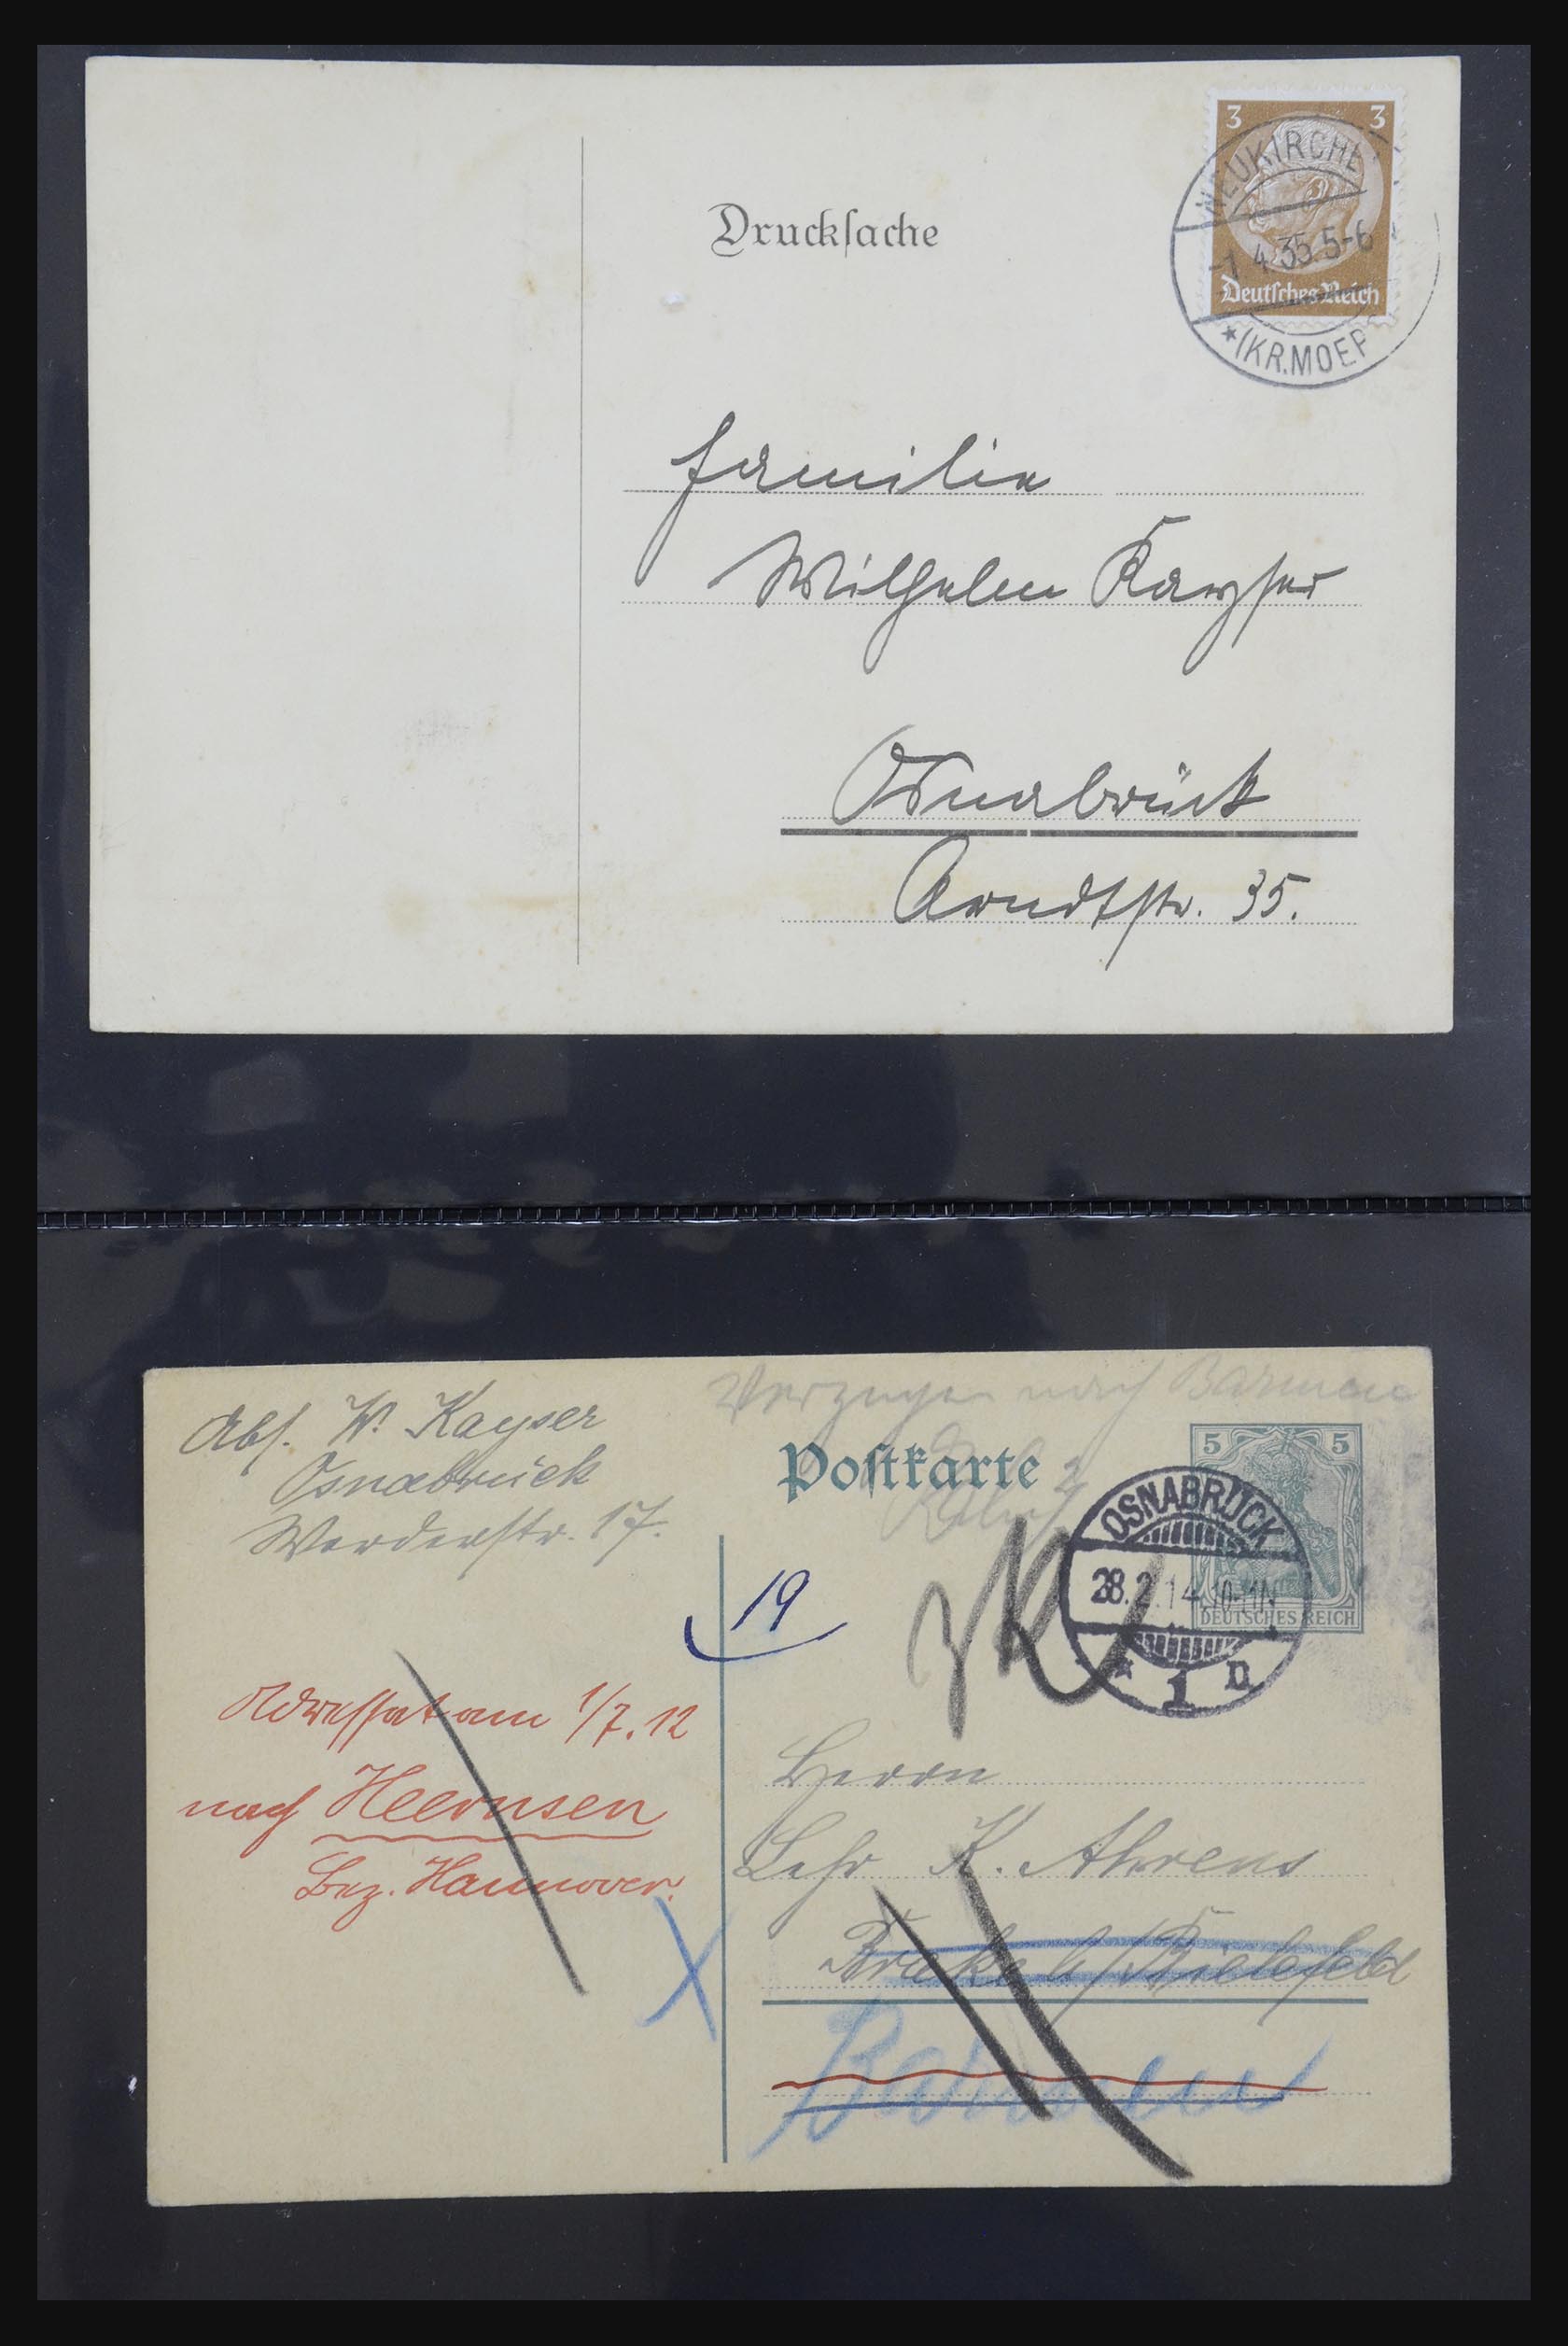 3 3
NEUKIRCHE
-1.4.35.5-6
Deutsches Reich
*(KR.MOER
Drucksache
Familie
Wilhelm Kayser
Osnabrück
Arndtstr. 35.
Verzogen nach Barmen
Abs. W. Kayser
Osnabrück
Werderstr. 17.
Postkarte
5 5
DEUTSCHES REICH
OSNABRÜCK
28.2.14.10-11N
* 1 D
19
zK
Adressat am 1/7.12
nach Heernsen
Bez. Hannover.
Herrn
Lehr K. Ahrens
Brake b/Bielefeld
Barmen